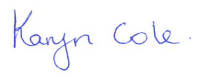 Karyn Cole.